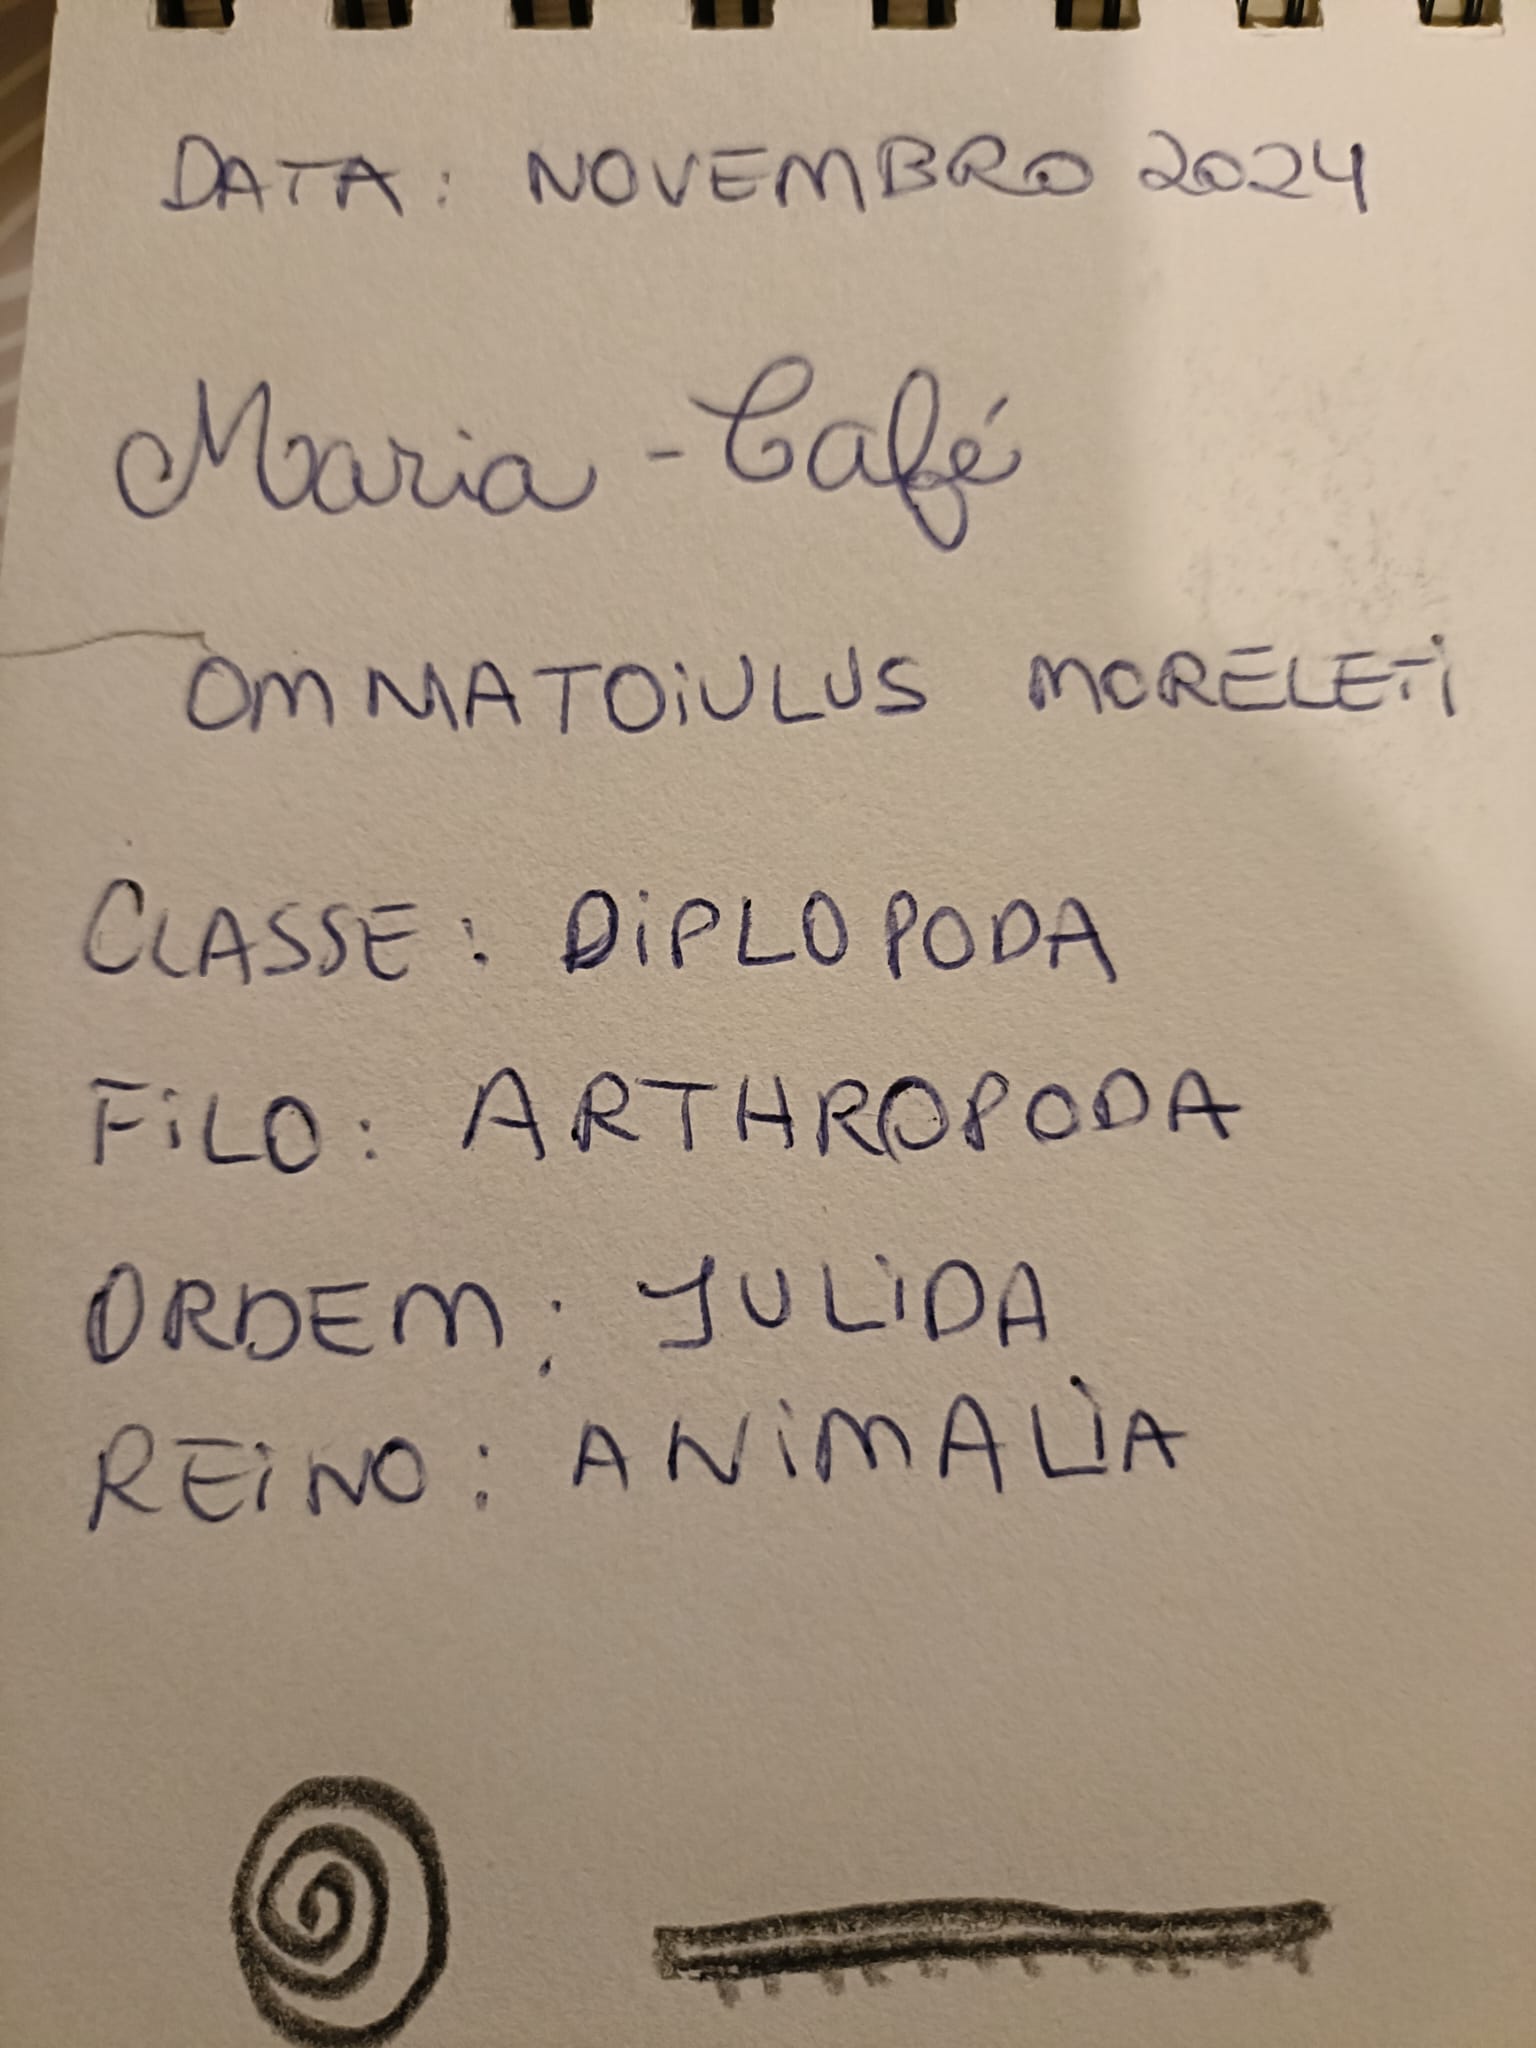 DATA: NOVEMBRO 2024
Maria-Café
OMMATOiULUS MORELETi
CLASSE: DiPLOPODA
FiLO: ARTHROPODA
ORDEM: JULiDA
REiNO: ANiMALiA